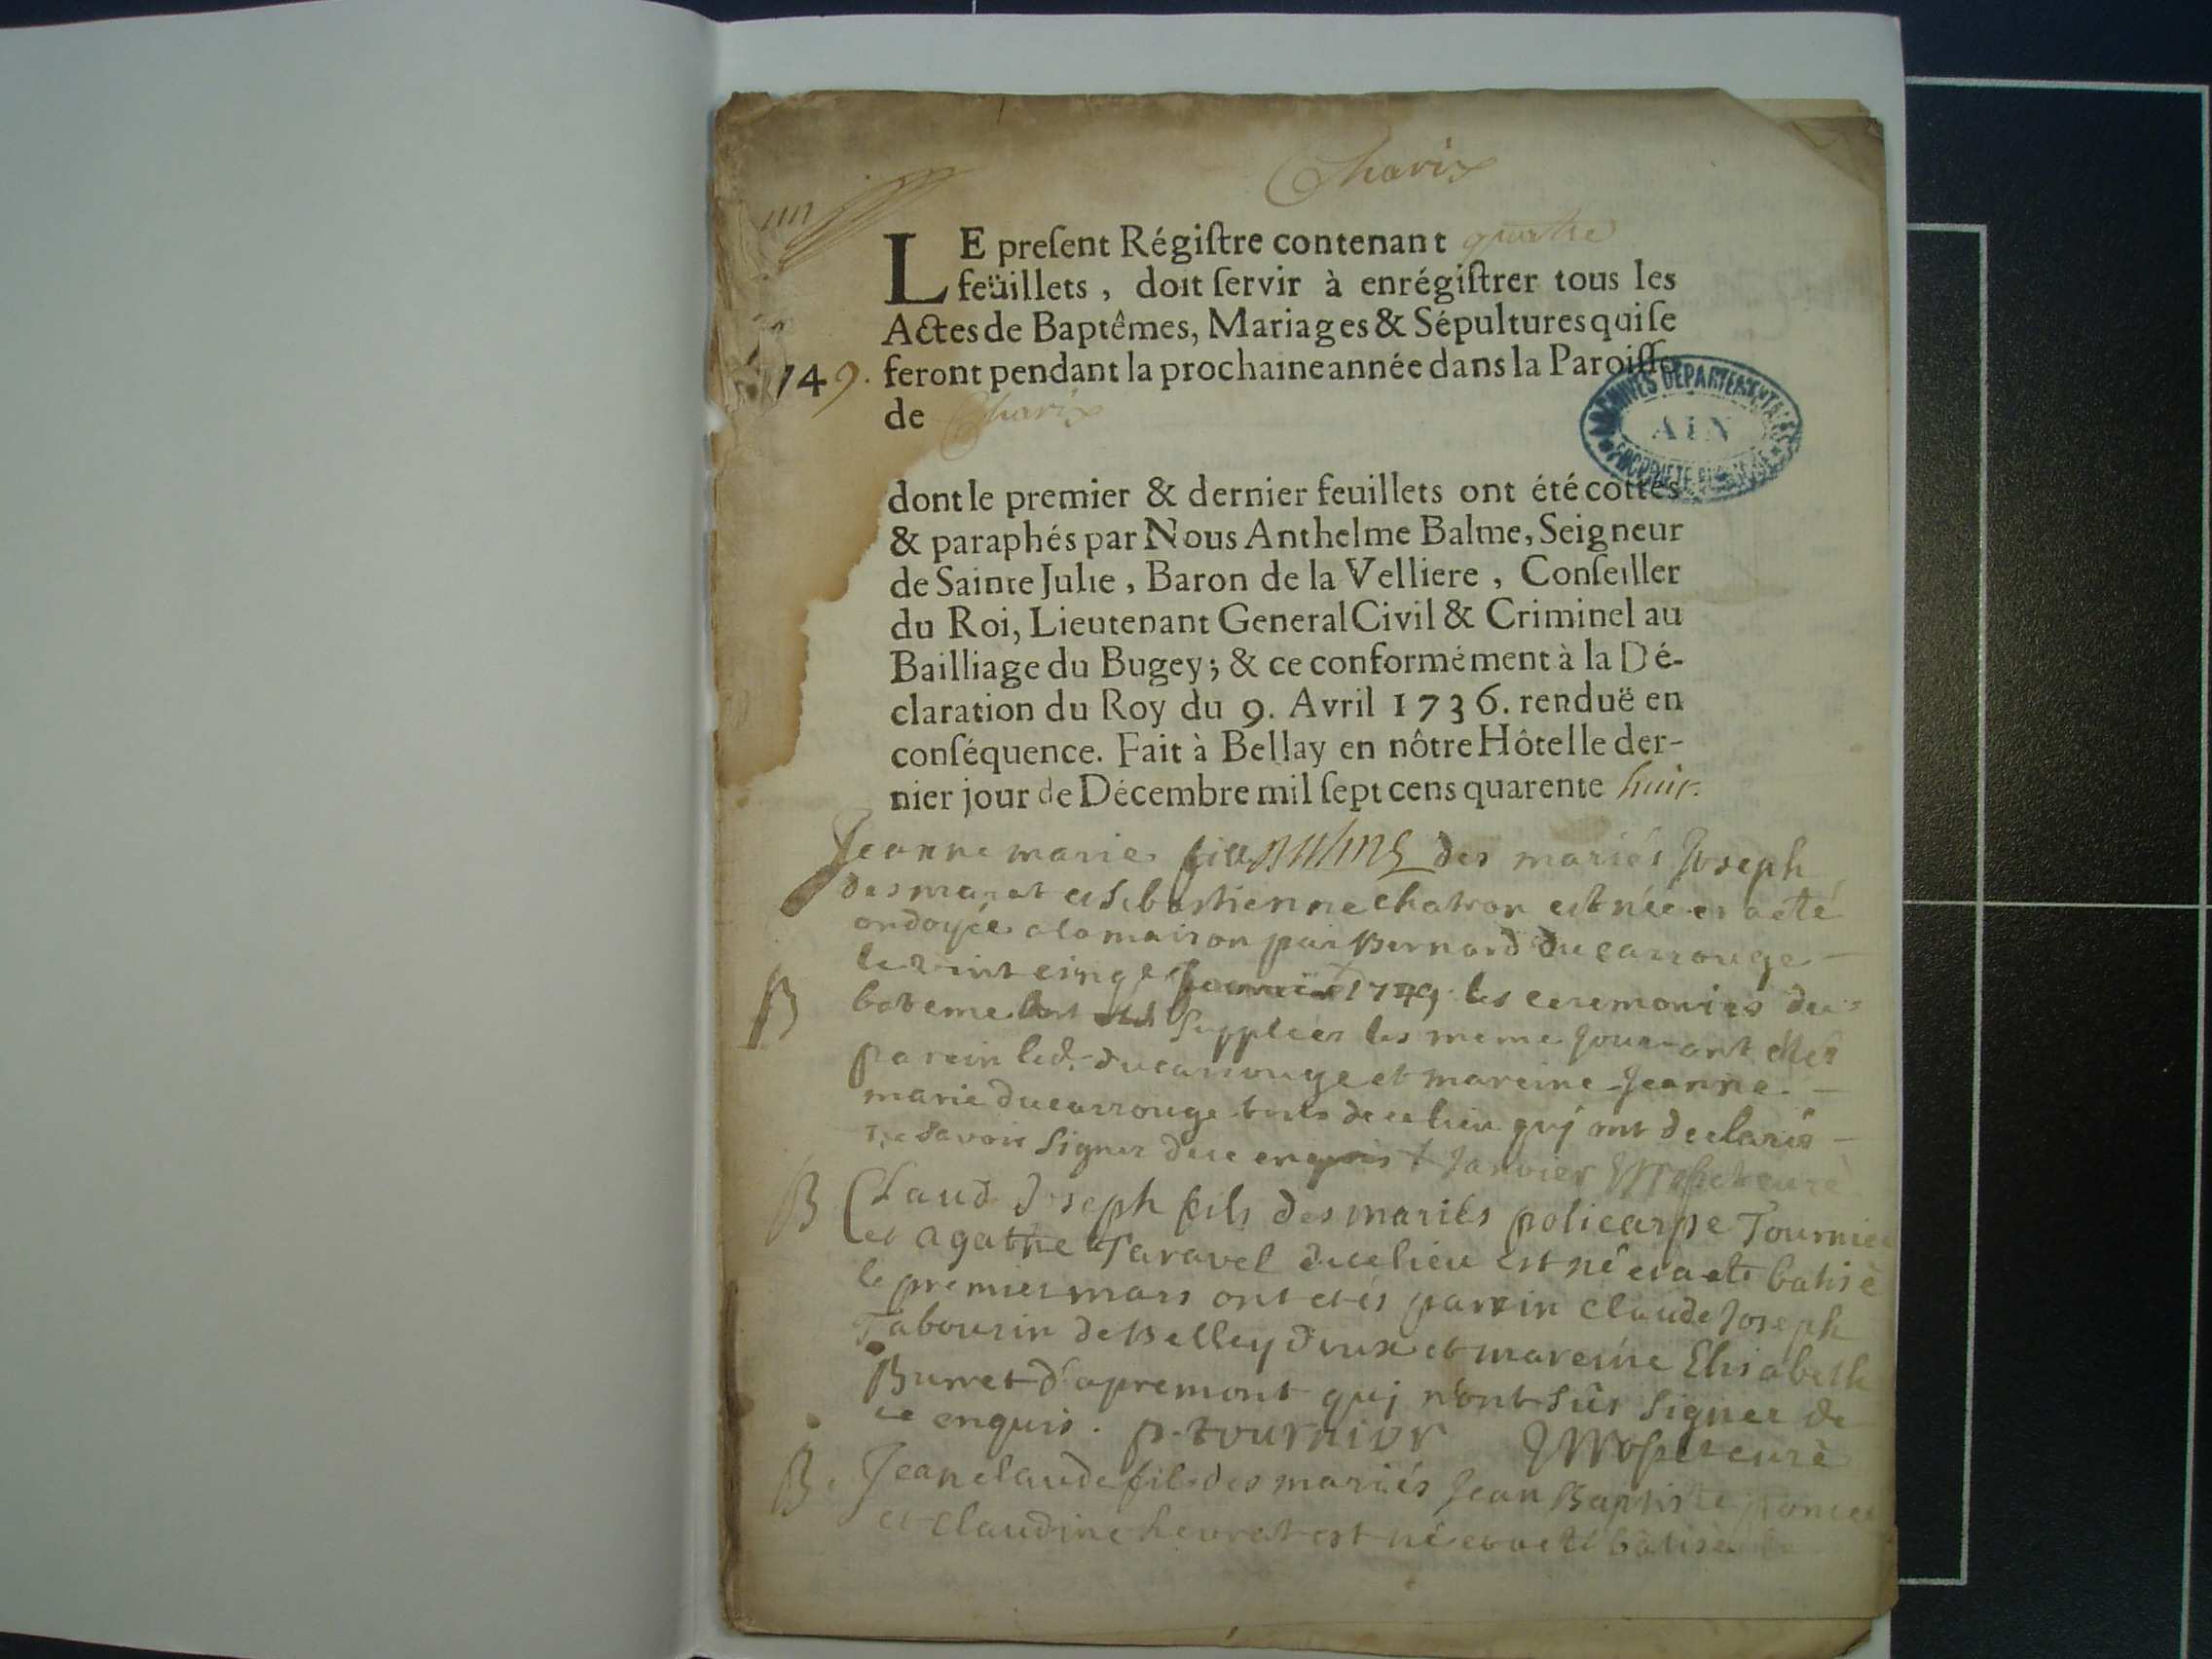 Charix
LE preſent Régiſtre contenant quatre
feüillets, doit ſervir à enrégiſtrer tous les
Actes de Baptêmes, Mariages & Sépultures qui ſe
1749. feront pendant la prochaine année dans la Paroiſſe
de Charix
ARCHIVES DEPARTEMENTALES
AIN
PROPRIETE PUBLIQUE
dont le premier & dernier feuillets ont été cottés
& paraphés par Nous Anthelme Balme, Seigneur
de Sainte Julie, Baron de la Velliere, Conſeiller
du Roi, Lieutenant General Civil & Criminel au
Bailliage du Bugey; & ce conformément à la Dé-
claration du Roy du 9. Avril 1736. renduë en
conſéquence. Fait à Bellay en nôtre Hôtel le der-
nier jour de Décembre mil ſept cens quarente huit.
Jeanne marie fille Balme des mariés Joseph
desmaret et Sebastienne chatron est née et a eté
ondoyée a la maison par Bernard Ducarrouge
le vint cinq 1749 les ceremonies du
B bateme ont eté Supplées les meme jour ont etés
parein led. ducarrouge et mareine Jeanne
marie ducarrouge touts de ce lieu quj ont declarés
ne Savoir Signer de ce enquis + Janvier curé
B Claud Joseph fils des mariés policarpe Tournier
et agathe Taravel de ce lieu est né et a eté batisé
le premier mars ont etés parein claude Joseph
Tabourin de Belleydoux et mareine Elisabeth
Burret d'apremont quj n'ont Sûs Signer de
ce enquis. p. tournior curé
B. Jean claude fils des mariés Jean Baptiste poncet
et claudine hevret est né et a eté batisé